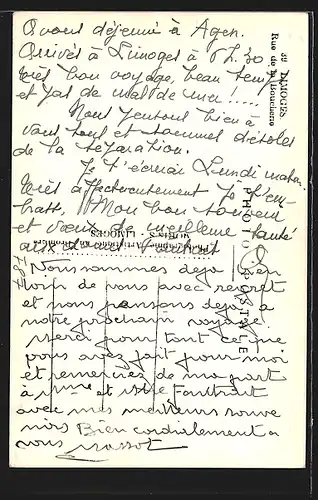 Avons déjeuné à Agen.
Arrivés à Limoges à 5h.30
très bon voyage, beau temps
et pas de mal de mer !....
Nous pensons bien à
vous tous et sommes désolés
de la séparation.
Je t'écrirai Lundi matin.
Très affectueusement je t'em-
brasse, Mon bon souvenir
et vœux de meilleure santé
aux
Nous sommes deja bien
loin de vous avec regret
et nous pensons deja a
notre prochain voyage.
Merci pour tout ce que
vous avez fait pour moi
et remerciez de ma part
à Mme et
avec mes meilleurs souve
nirs Bien cordialement a
vous
LIMOGES
Rue de la Boucherie
PHOTO POSTALE
LIMOGES